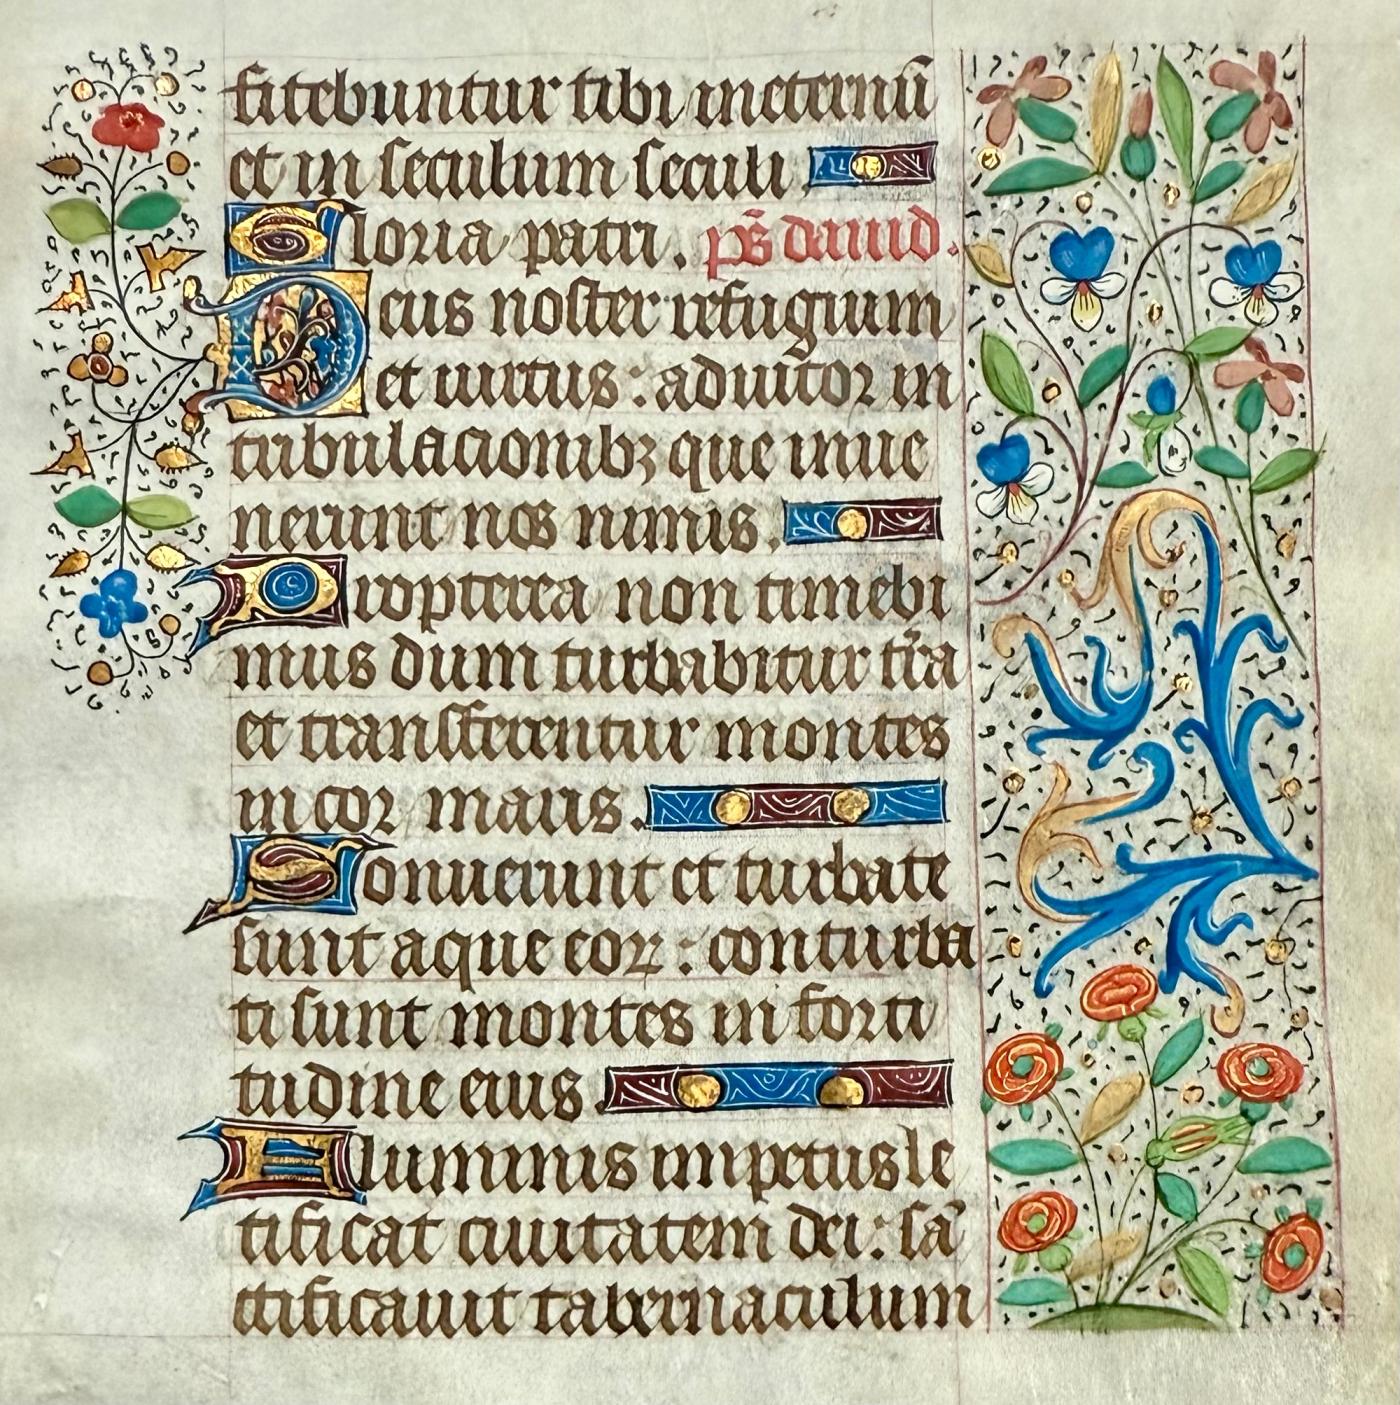 fitebuntur tibi ineternū
et in seculum seculi
Gloria patri. ps̄ dauid.
Deus noster refugium
et uirtus: adiutor in
tribulacionibꝫ que inue
nerunt nos nimis.
Propterea non timebi
mus dum turbabitur tr̄a
et transferentur montes
in cor maris.
Sonuerunt et turbate
sunt aque eoꝝ: conturba
ti sunt montes in forti
tudine eius.
Fluminis impetus le
tificat ciuitatem dei: sā
ctificauit tabernaculum